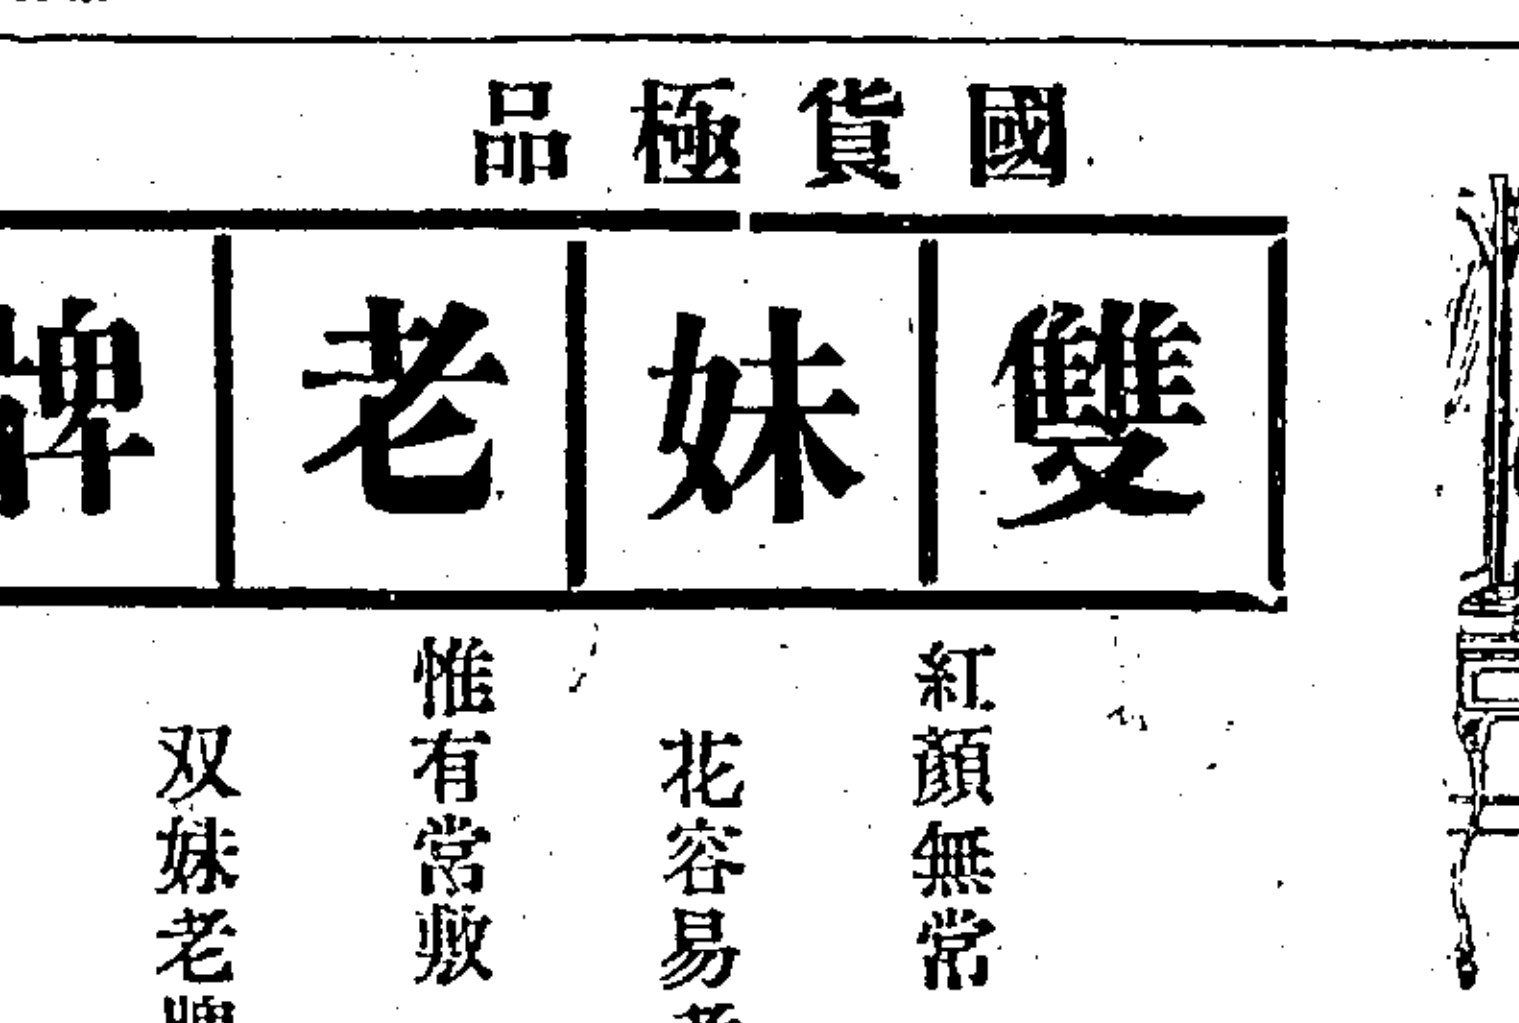 國貨極品
雙妹老牌
紅顏無常
花容易老
惟有常敷
双妹老牌